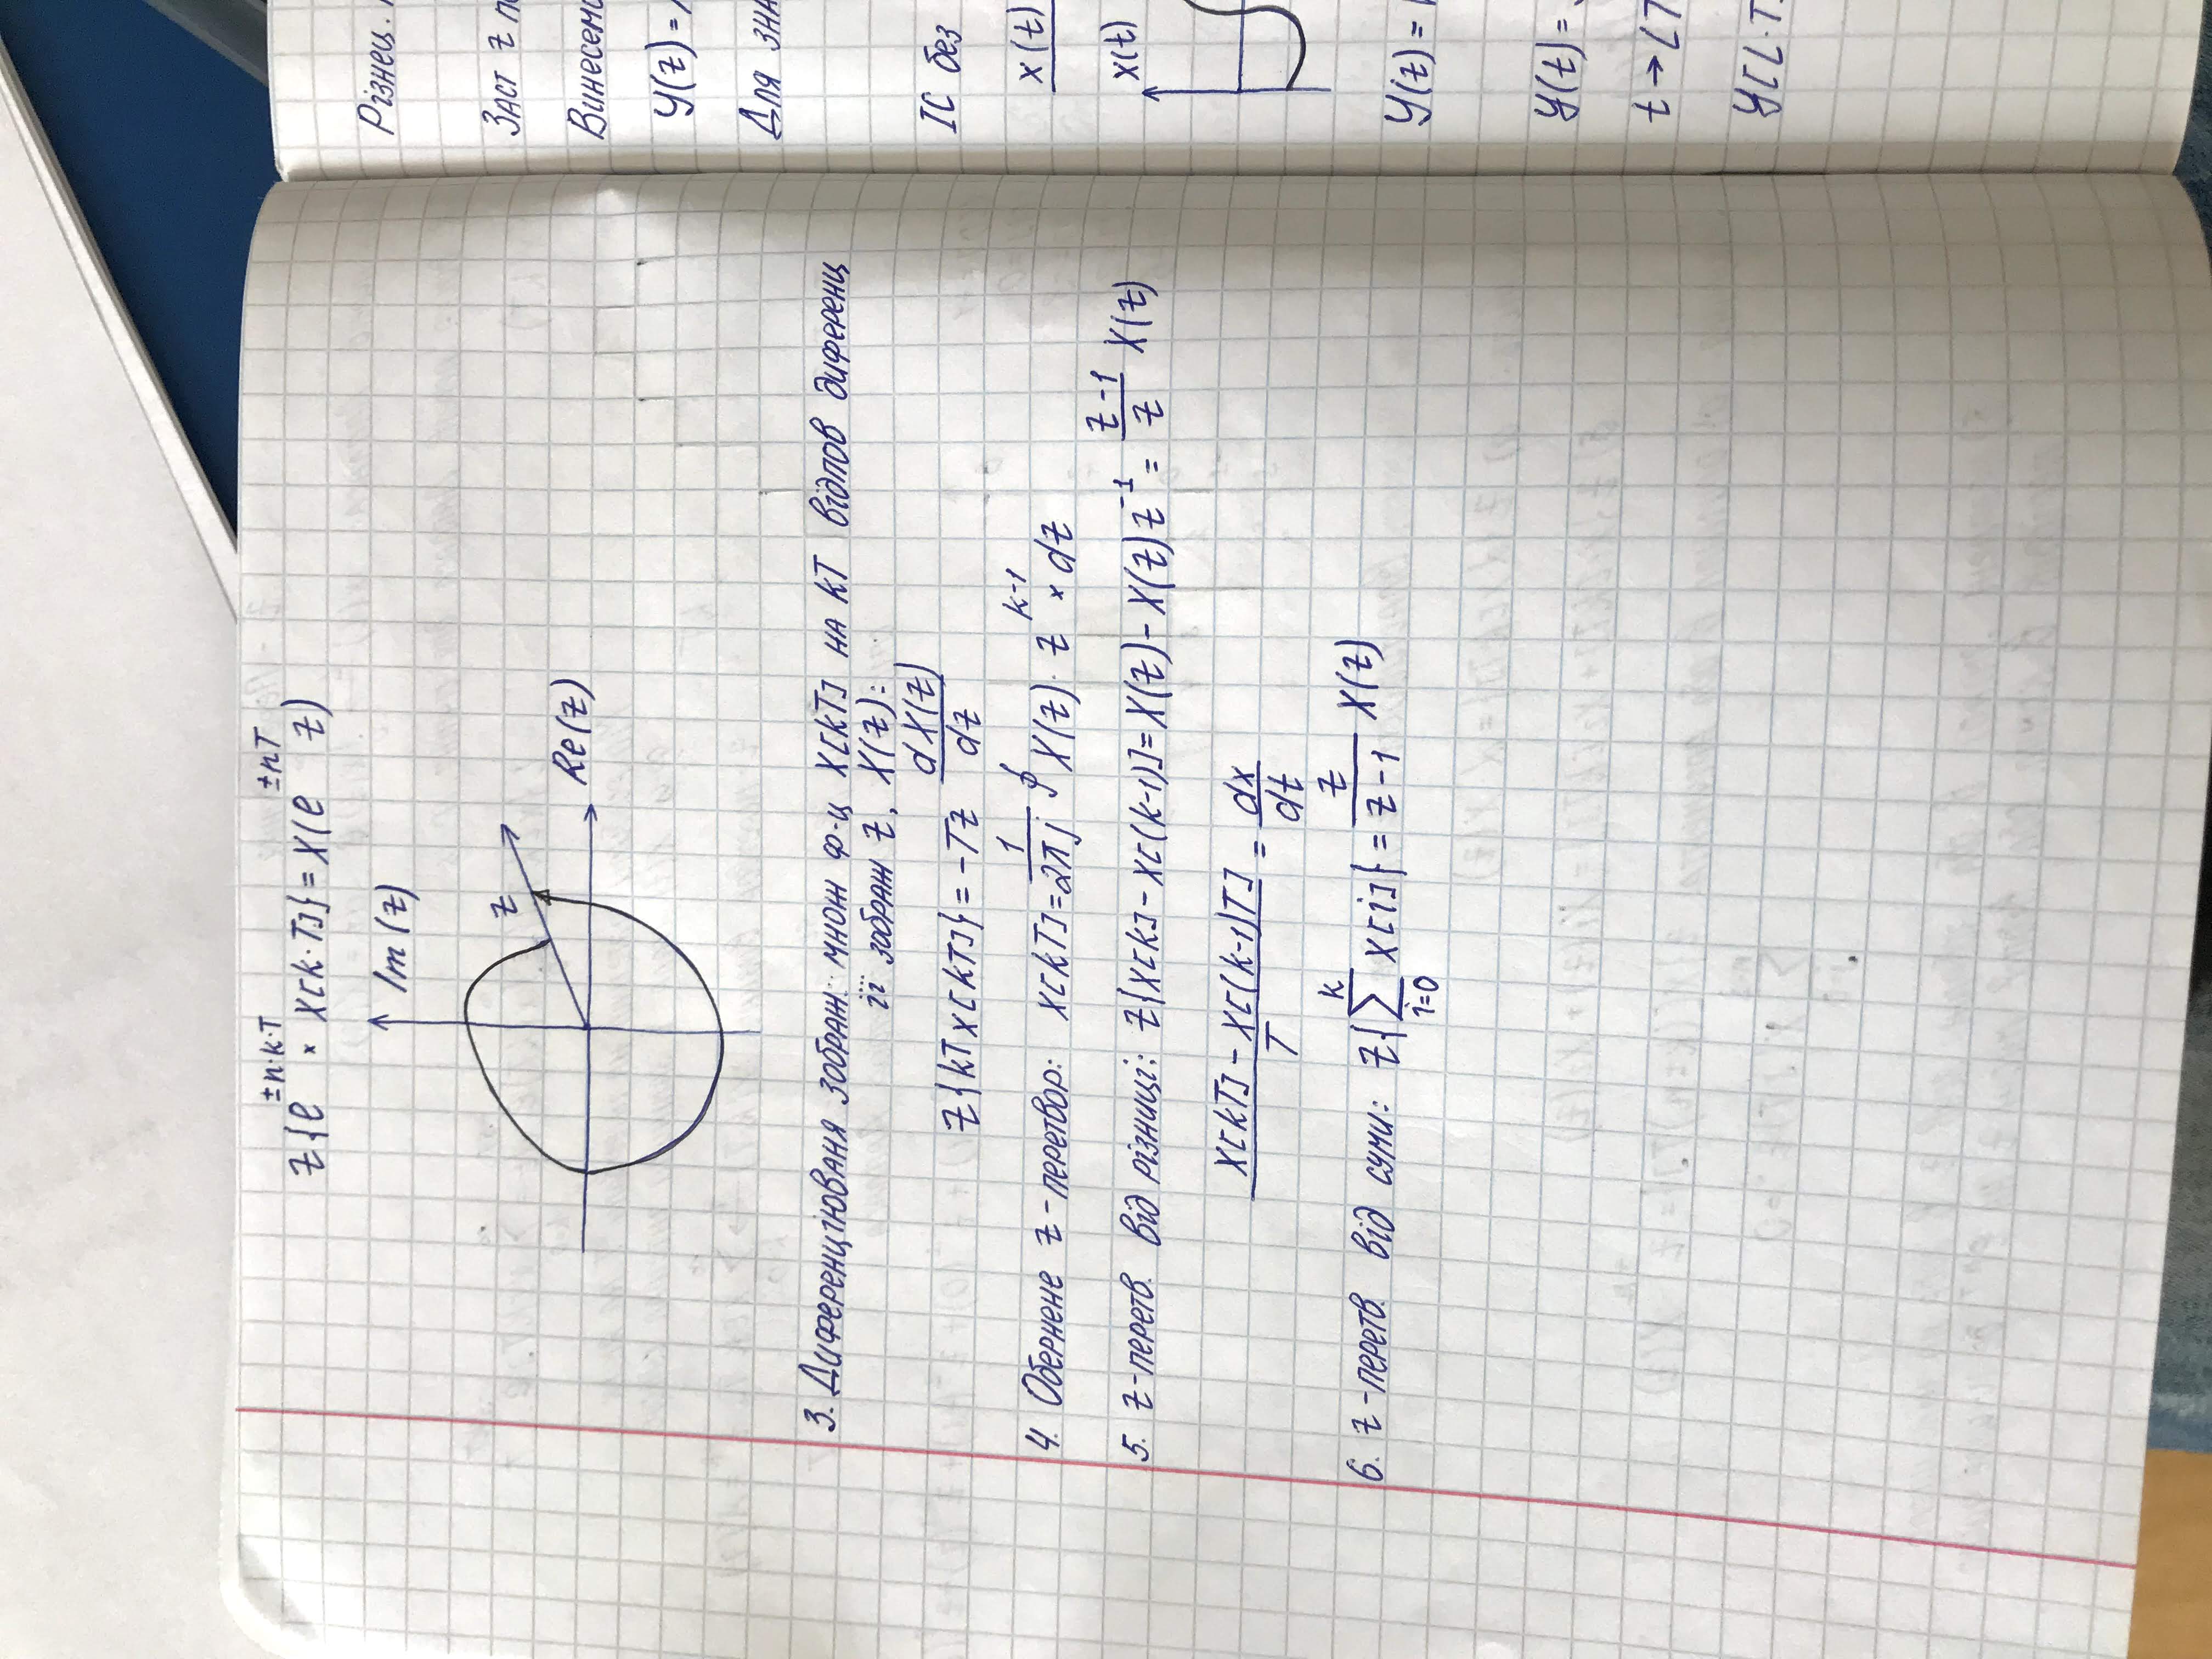 z{e^{±n·k·T} × X[k·T]} = X(e^{±nT} z)
Im(z)
z
Re(z)
3. Диференціюваня зображ: множ ф-ц X[kT] на kT відпов диференц
її зображ z, X(z):
z{kTx[kT]} = -Tz dX(z)/dz
4. Обернене z-перетвор: X[kT] = 1/2πj ∮ X(z)· z^{k-1} × dz
5. z-перетв. від різниці: z{X[k] - X[(k-1)] = X(z) - X(z)z^{-1} = z-1/z X(z)
X[kT] - X[(k-1)T]/T = dx/dt
6. z-перетв. від суми: z{∑_{i=0}^{k} X[i]} = z/z-1 X(z)
Різнец.
Заст z
Винесемо
y(z) =
Для
ІС без
x(t)
x(t)
y(z) =
y(t) =
t → LT
y[L·T]